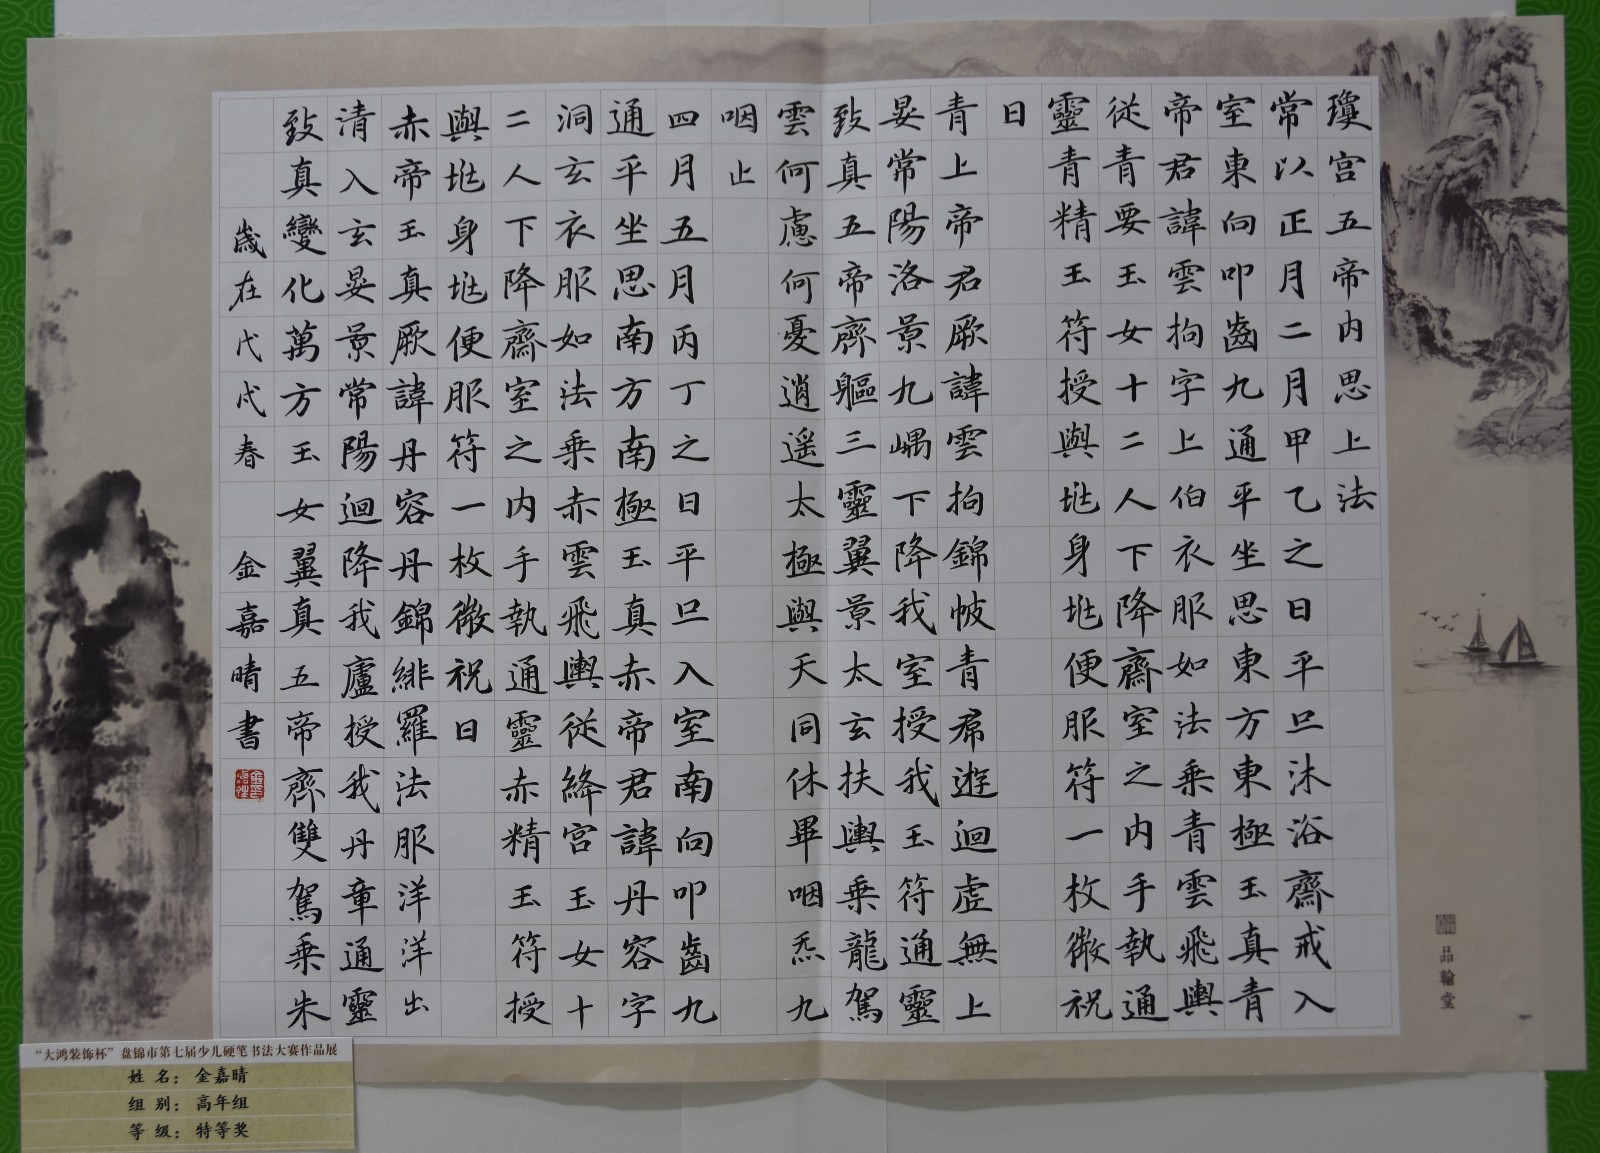 瓊宫五帝内思上法
常以正月二月甲乙之日平旦沐浴齋戒入
室東向叩齒九通平坐思東方東極玉真青
帝君諱雲拘字上伯衣服如法乘青雲飛輿
従青要玉女十二人下降齋室之内手執通
靈青精玉符授與地身地便服符一枚微祝
日
青上帝君厥諱雲拘錦帔青帬遊迴虚無上
晏常陽洛景九嵎下降我室授我玉符通靈
致真五帝齊軀三靈翼景太玄扶輿乘龍駕
雲何慮何憂逍遥太極與天同休畢咽炁九
咽止
四月五月丙丁之日平旦入室南向叩齒九
通平坐思南方南極玉真赤帝君諱丹容字
洞玄衣服如法乘赤雲飛輿従絳宫玉女十
二人下降齋室之内手執通靈赤精玉符授
與地身地便服符一枚微祝日
赤帝玉真厥諱丹容丹錦緋羅法服洋洋出
清入玄晏景常陽迴降我廬授我丹章通靈
致真變化萬方玉女翼真五帝齊雙駕乘朱
歲在戊戌春 金嘉晴書
品翰堂
“大鸿装饰杯”盘锦市第七届少儿硬笔书法大赛作品展
姓 名： 金嘉晴
组 别： 高年组
等 级： 特等奖